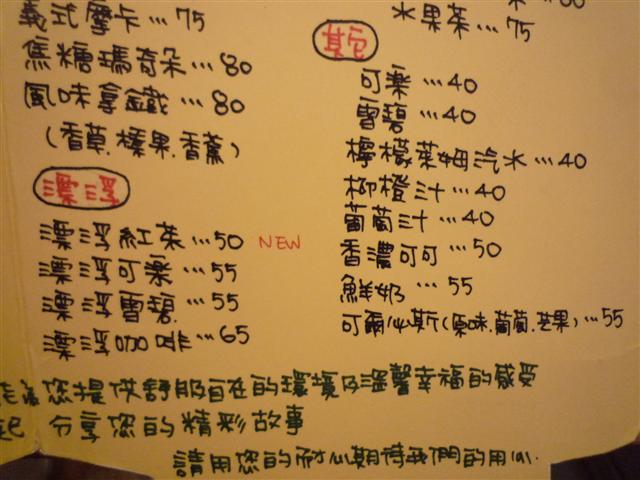 義式摩卡…75
焦糖瑪奇朵…80
風味拿鐵…80
(香草.榛果.香蕉)
漂浮
漂浮紅茶…50 NEW
漂浮可樂…55
漂浮雪碧…55
漂浮咖啡…65
水果茶…75
其它
可樂…40
雪碧…40
檸檬萊姆汽水…40
柳橙汁…40
葡萄汁…40
香濃可可…50
鮮奶…55
可爾必斯(原味.葡萄.芒果)…55
您提供舒服自在的環境及溫馨幸福的感受
起 分享您的精彩故事
請用您的耐心期待我們的用心.